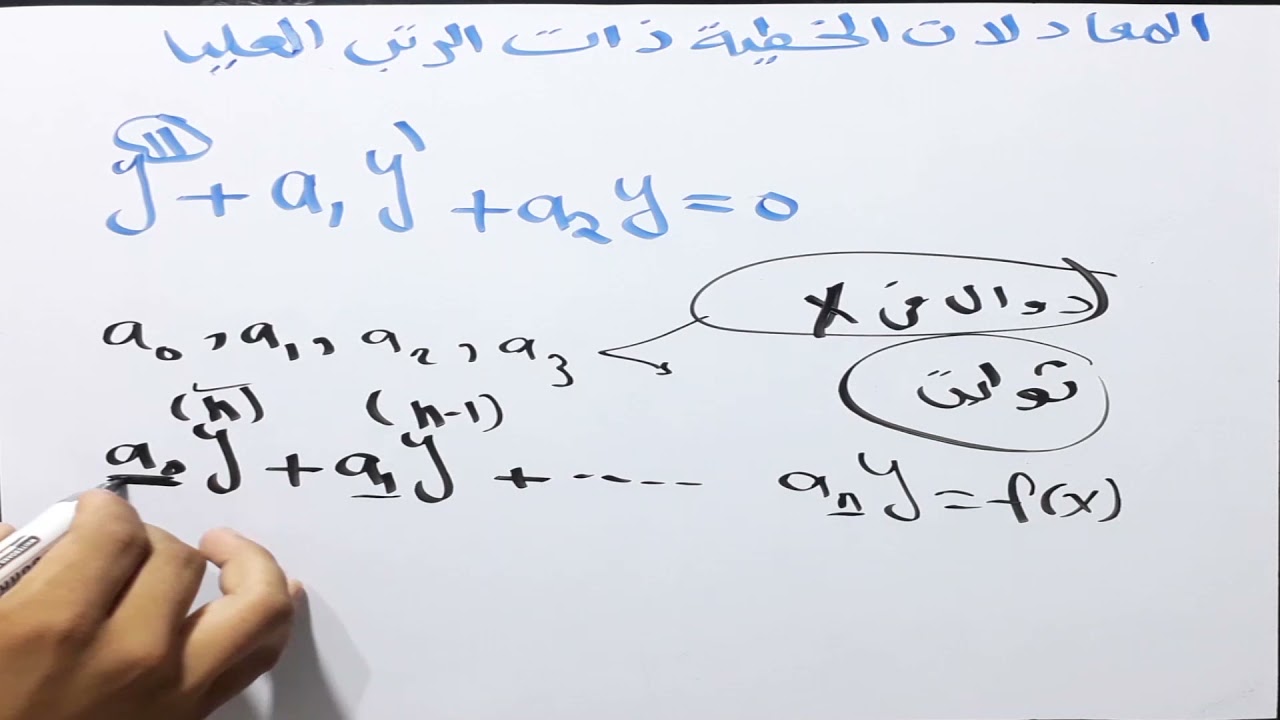 المعادلات الخطية ذات الرتب العليا
y''' + a₁y' + a₂y = 0
a₀, a₁, a₂, a₃
دوال من x
ثوابت
a₀y⁽ⁿ⁾ + a₁y⁽ⁿ⁻¹⁾ + ------ aₙy = f(x)